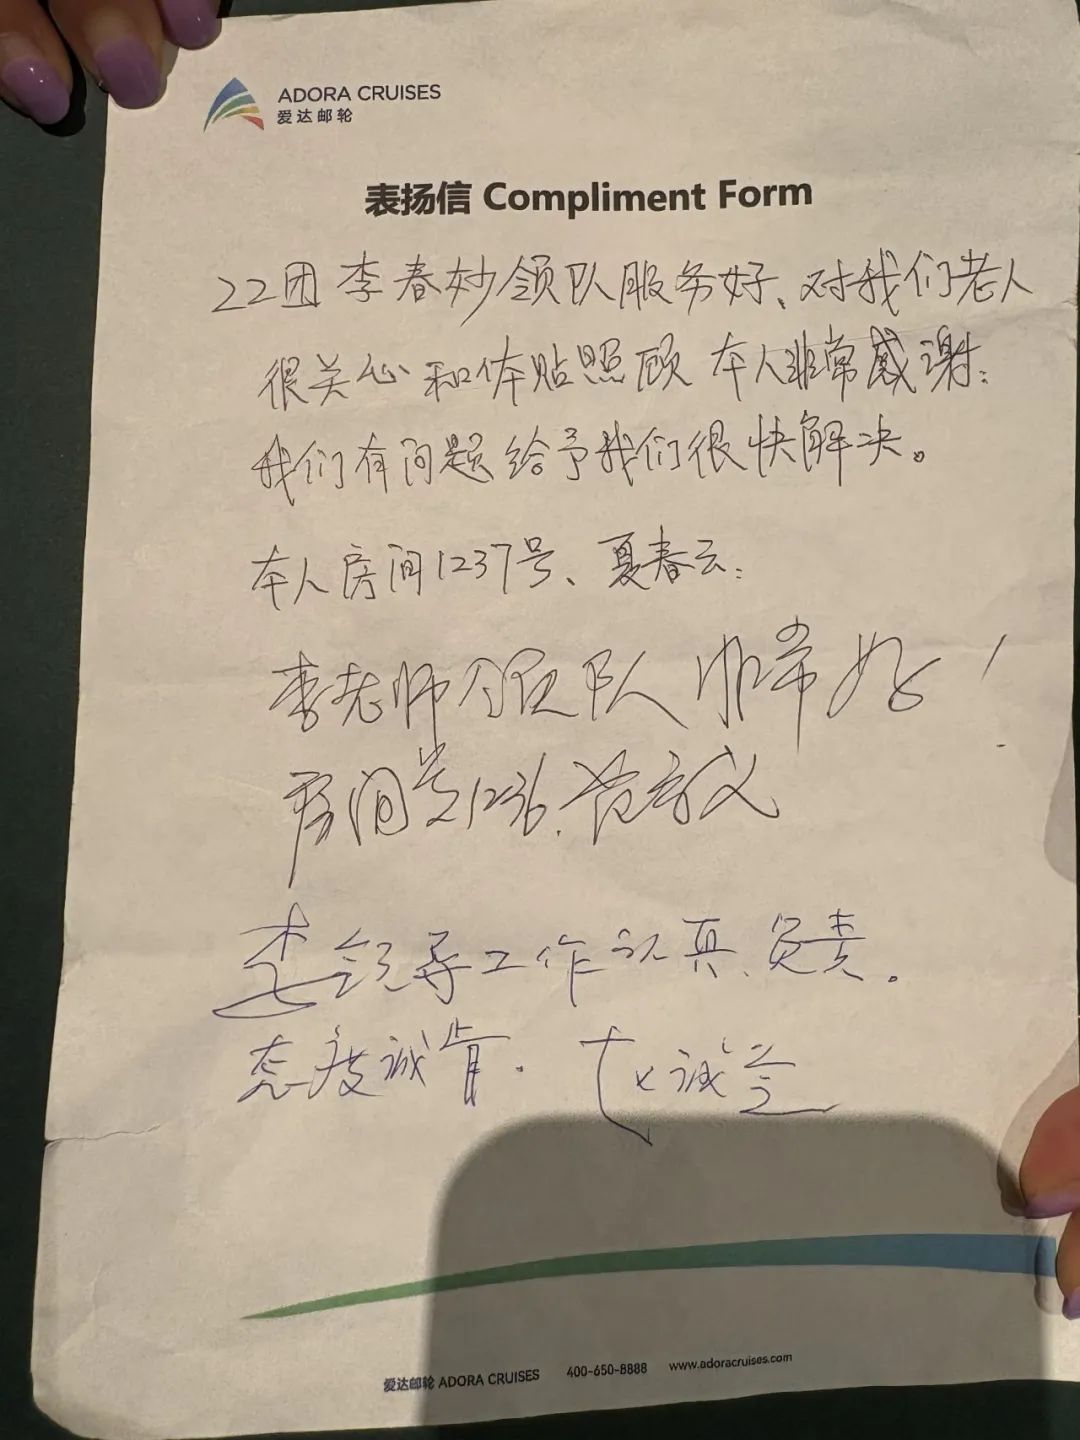 ADORA CRUISES
爱达邮轮
表扬信 Compliment Form
22团李春妙领队服务好、对我们老人
很关心和体贴照顾 本人非常感谢：
我们有问题给予我们很快解决。
本人房间1237号、夏春云：
李老师领队非常好！
房间号1236.
李领导工作认真、负责。
态度诚肯.
爱达邮轮 ADORA CRUISES 400-650-8888 www.adoracruises.com